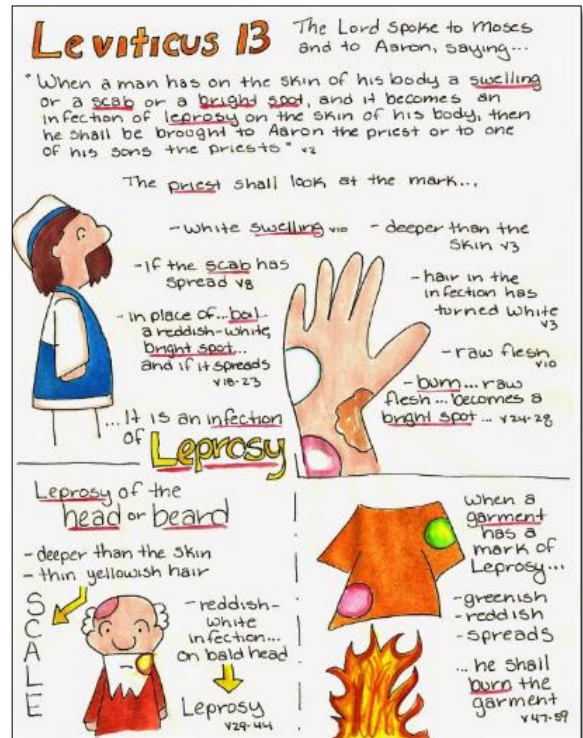 Leviticus 13
The Lord spoke to Moses
and to Aaron, saying...
"When a man has on the skin of his body a swelling
or a scab or a bright spot, and it becomes an
infection of leprosy on the skin of his body, then
he shall be brought to Aaron the priest or to one
of his sons the priests" v2
The priest shall look at the mark...
-white swelling v10
-if the scab has
spread v8
-in place of...boil
a reddish-white,
bright spot...
and if it spreads
v18-23
-deeper than the
skin v3
-hair in the
infection has
turned white
v3
-raw flesh
v10
-burn...raw
flesh...becomes a
bright spot... v24-28
...It is an infection
of Leprosy
Leprosy of the
head or beard
-deeper than the skin
-thin yellowish hair
SCALE
-reddish-
white
infection...
on bald head
Leprosy
v29-44
when a
garment
has a
mark of
Leprosy...
-greenish
-reddish
-spreads
...he shall
burn the
garment
v47-59